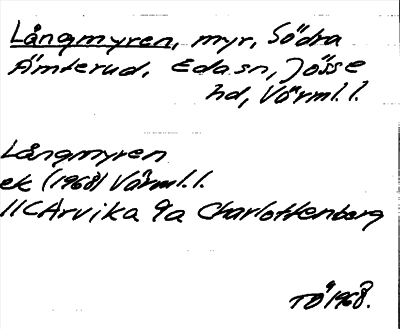 Långmyren, myr, Södra
Ämterud, Eda sn, Jösse
hd, Värml. l.
Långmyren
ek (1968) Värml. l.
11C Arvika 9a Charlottenberg
TÖ 1968.